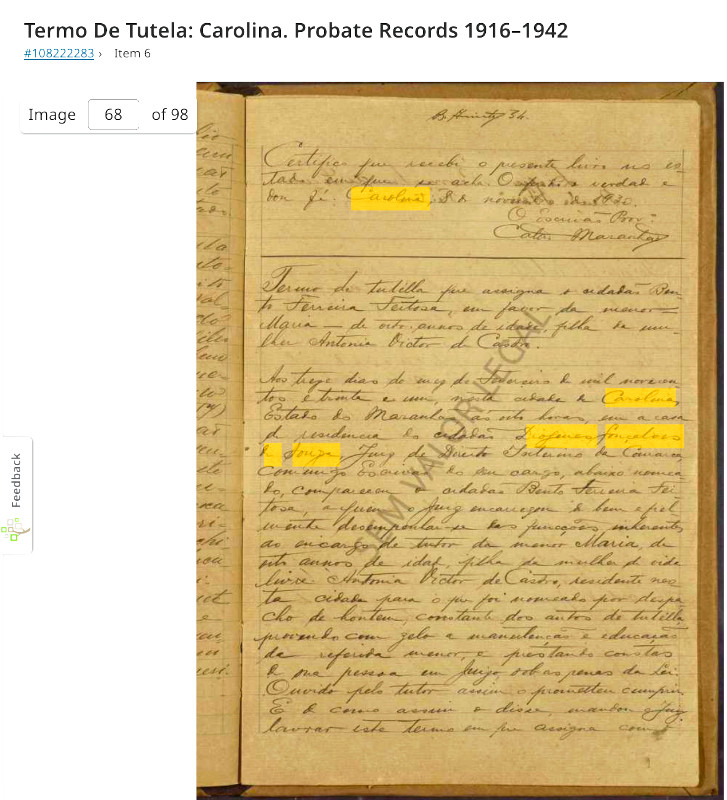 Termo De Tutela: Carolina. Probate Records 1916–1942
#108222283 › Item 6
Image 68 of 98
34.
Certifico que recebi o presente livro no es-
tado em que se acha. O referido é verdade e
dou fé. Carolina, 8 de novembro de 1930.
O Escrivão Prov.º
Catão Maranhão
Termo de tutilla que assigna o cidadão Ben-
to Ferreira Feitosa, em favor da menor
Maria — de oito annos de idade, filha da mu-
lher Antonia Victor de Castro.
Aos treze dias do mez de Fevereiro de mil novecen-
tos e trinta e um, nesta cidade de Carolina,
Estado do Maranhão, as oito horas, em a casa
de residencia do cidadão Diogenes Gonçalves
de Souza, Juiz de Direito Interino da Comarca
commigo Escrivão do seu cargo, abaixo nomea
do, compareceu o cidadão Bento Ferreira Fei
tosa, a quem o Juiz encarregou de bem e fiel
mente desempenhar-se das funcções inherentes
ao encargo de tutor da menor Maria, de
oito annos de idade, filha da mulher de vida
livre Antonia Victor de Castro, residente nes
ta cidade para o que foi nomeado por despa
cho de hontem, constante dos autos de tutilla,
provendo com zelo a manutenção e educação
da referida menor, e prestando contas
de sua pessoa em Juizo, sob as penas da Lei.
Ouvido pelo tutor assim o prometteu cumprir.
E de como assim o disse, mandou o Juiz
lavrar este termo em que assigna com o
SEM VALOR LEGAL
Feedback